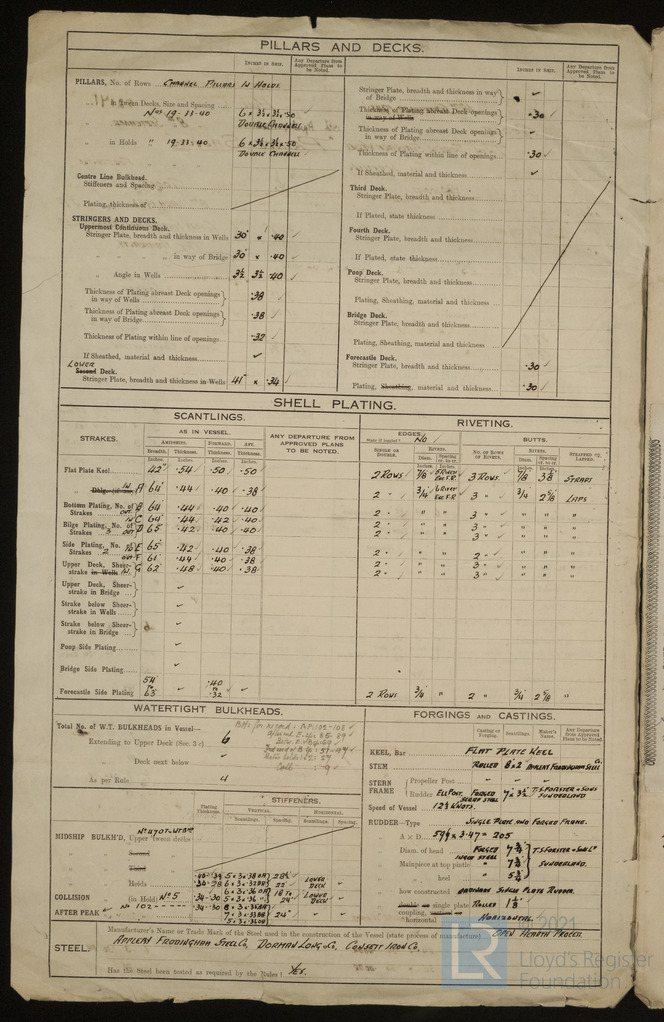 PILLARS AND DECKS.
INCHES IN SHIP.
Any Departure from Approved Plans to be Noted.
INCHES IN SHIP.
Any Departure from Approved Plans to be Noted.
PILLARS, No. of Rows CHANNEL PILLARS IN HOLDS.
in Tween Decks, Size and Spacing
Nos 19-33-40 6 × 3½ × 3½ × .50
DOUBLE CHANNELS
in Holds " 19-33-40 6 × 3½ × 3½ × .50
DOUBLE CHANNELS
Centre Line Bulkhead.
Stiffeners and Spacing
Plating, thickness of
STRINGERS AND DECKS.
Uppermost Continuous Deck.
Stringer Plate, breadth and thickness in Wells 30" × .40 ✓
" " in way of Bridge 30" × .40 ✓
" Angle in Wells 3½ 3½ .40 ✓
Thickness of Plating abreast Deck openings in way of Wells .38 ✓
Thickness of Plating abreast Deck openings in way of Bridge .38 ✓
Thickness of Plating within line of openings .32 ✓
If Sheathed, material and thickness ✓
LOWER
Second Deck.
Stringer Plate, breadth and thickness in Wells 41" × .34 ✓
Stringer Plate, breadth and thickness in way of Bridge ✓
Thickness of Plating abreast Deck openings in way of Wells .30 ✓
Thickness of Plating abreast Deck openings in way of Bridge ✓
Thickness of Plating within line of openings .30 ✓
If Sheathed, material and thickness ✓
Third Deck.
Stringer Plate, breadth and thickness
If Plated, state thickness
Fourth Deck.
Stringer Plate, breadth and thickness
If Plated, state thickness
Poop Deck.
Stringer Plate, breadth and thickness
Plating, Sheathing, material and thickness
Bridge Deck.
Stringer Plate, breadth and thickness
Plating, Sheathing, material and thickness
Forecastle Deck.
Stringer Plate, breadth and thickness .30 ✓
Plating, Sheathing, material and thickness .30 ✓
SHELL PLATING.
SCANTLINGS.
RIVETING.
STRAKES.
AS IN VESSEL.
AMIDSHIPS. FORWARD. AFT.
Breadth. Thickness. Thickness. Thickness.
Inches. Inches. Inches. Inches.
ANY DEPARTURE FROM APPROVED PLANS TO BE NOTED.
EDGES. NO
State if joggled?
SINGLE OR DOUBLE.
RIVETS.
Diam. Spacing cr. to cr.
BUTTS.
NO. OF ROWS OF RIVETS.
RIVETS.
Diam. Spacing cr. to cr.
STRAPPED OR LAPPED.
Flat Plate Keel 42" .54 .50 .50 2 ROWS 7/8 3 ROWS 7/8 3⅜ STRAPS
IN A 64" .44 .40 .38 2 " 3/4 3 " 3/4 2⅝ LAPS
Bottom Plating, No. of Strakes OUT B 64" .44 .40 .40 2 " " " 3 " " " "
IN C 64" .44 .42 .40 2 " " " 3 " " " "
Bilge Plating, No. of Strakes OUT D 65" .42 .40 .40 2 " " " 3 " " " "
Side Plating, No. of Strakes 2 IN E 65" .42 .40 .38 2 " " " 2 " " " "
OUT F 61" .44 .40 .38 2 " " " 3 " " " "
Upper Deck, Sheer-strake in Wells IN G 62" .48 .40 .38 2 " " " 3 " " " "
Upper Deck, Sheer-strake in Bridge ✓
Strake below Sheer-strake in Wells ✓
Strake below Sheer-strake in Bridge ✓
Poop Side Plating ✓
Bridge Side Plating ✓
Forecastle Side Plating 54" TO 63" ✓ .40 TO .32 ✓ 2 ROWS 3/4 " 2 " 3/4 2⅝ "
WATERTIGHT BULKHEADS.
Total No. of W.T. BULKHEADS in Vessel—
Extending to Upper Deck (Sec. 3 c) 6
Deck next below ✓
As per Rule 4
STIFFENERS.
Plating Thickness.
VERTICAL. HORIZONTAL.
Scantlings. Spacing. Scantlings. Spacing.
MIDSHIP BULKH'D, Upper tween decks
Second
Third
Holds
COLLISION (in Hold) No 5
AFTER PEAK No 102
LOWER DECK
LOWER DECK
FORGINGS AND CASTINGS.
Casting or Forging. Scantlings. Maker's Name. Any Departure from Approved Plans to be Noted.
KEEL, Bar FLAT PLATE KEEL
STEM ROLLED 8 × 2 APPLEBY FRODINGHAM STEEL Co.
STERN FRAME
Propeller Post ✓ ✓ ✓
Rudder 7 × 3½ T.S. FORSTER & SONS SUNDERLAND
Speed of Vessel 12½ KNOTS.
RUDDER—Type SINGLE PLATE AND FORGED FRAME.
A × D 3.47 = 205
Diam. of head FORGED INGOT STEEL 7¾ T.S. FORSTER & SONS Ld
Mainpiece at top pintle 7¾ SUNDERLAND.
" heel 5¾
how constructed ORDINARY SINGLE PLATE RUDDER.
double or single plate ROLLED 1⅛
coupling, vertical or horizontal HORIZONTAL
STEEL.
Manufacturer's Name or Trade Mark of the Steel used in the construction of the Vessel (state process of manufacture) OPEN HEARTH PROCESS.
APPLEBY FRODINGHAM STEEL Co, DORMAN LONG & Co, CONSETT IRON Co,
Has the Steel been tested as required by the Rules? YES.
© 2021
LR
Lloyd's Register
Foundation